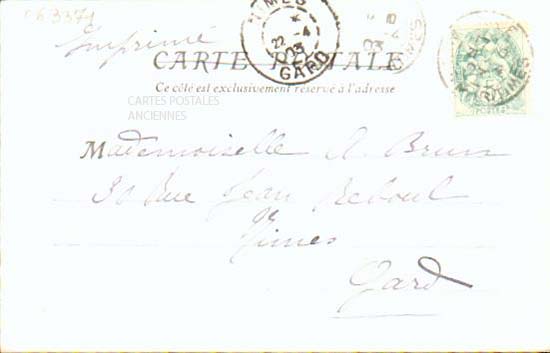 C63371
Imprimé
NIMES
22 -4
03
GARD
CARTE POSTALE
Ce côté est exclusivement réservé à l'adresse
CARTES POSTALES
ANCIENNES
Mademoiselle A. Brun
30 Rue Jean Reboul
Nimes
Gard